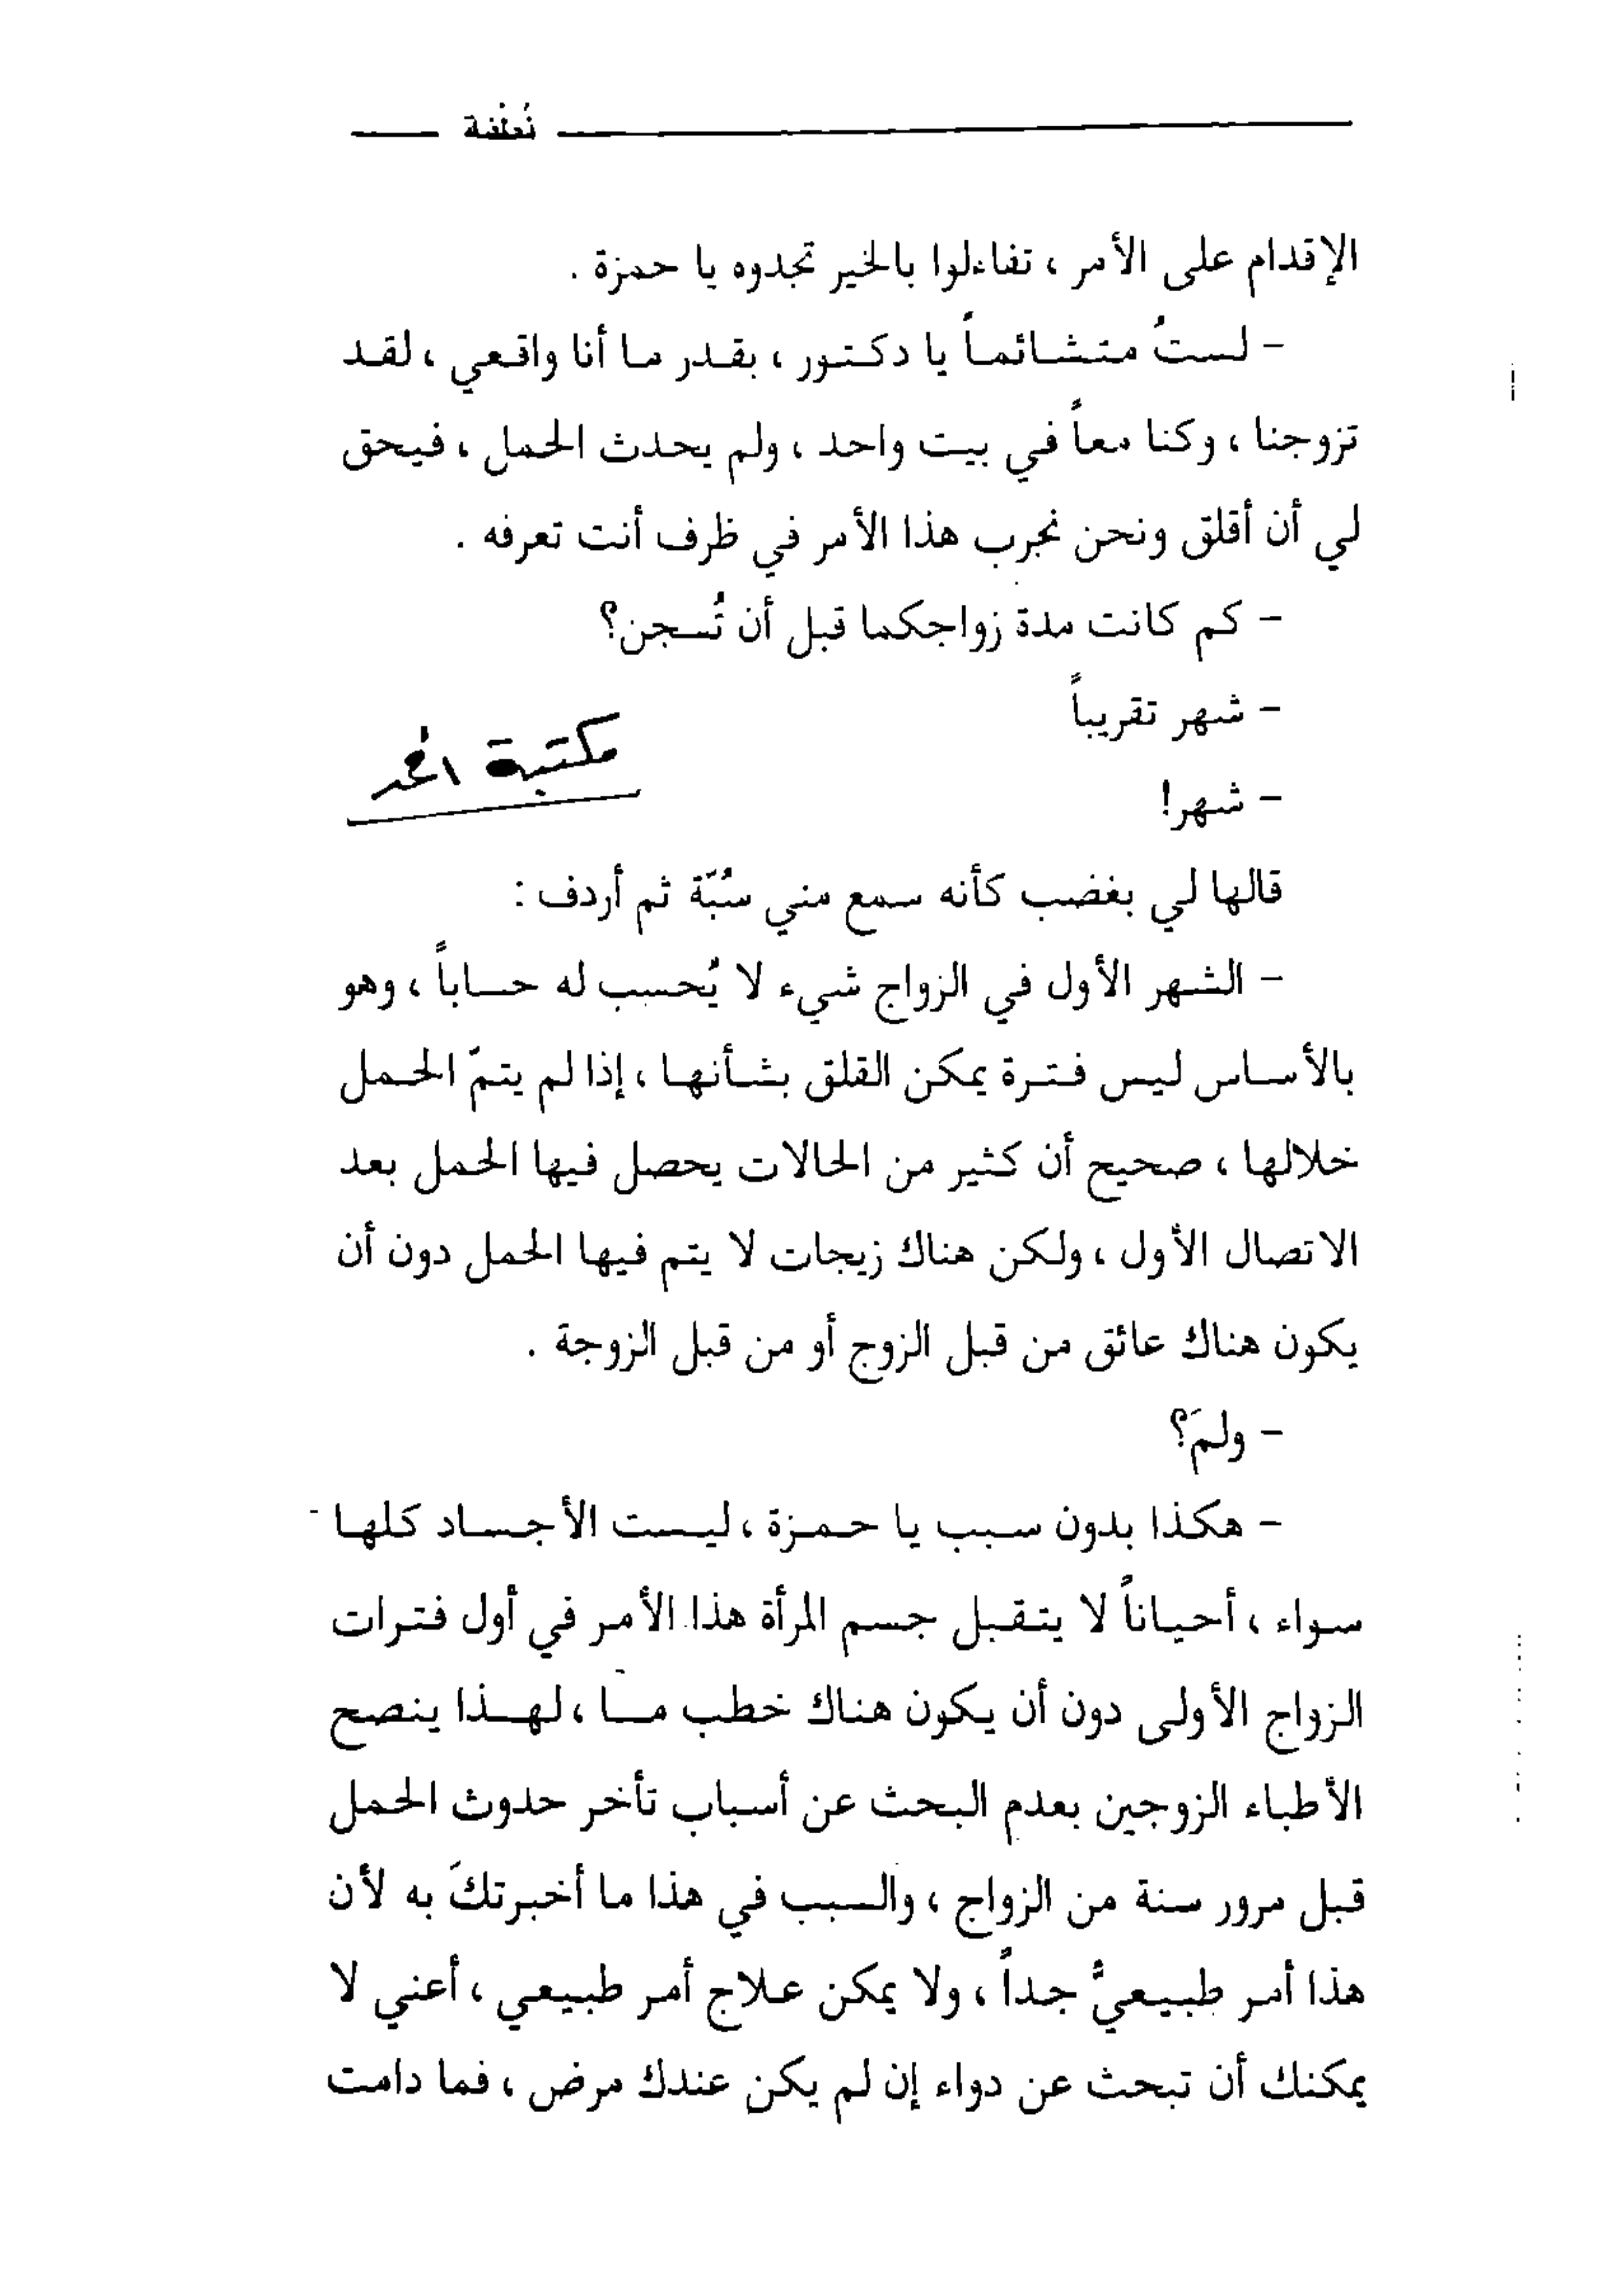 نُطْفة
الإقدام على الأمر ، تفاءلوا بالخير تجدوه يا حمزة .
- لستُ متشائماً يا دكتور ، بقدر ما أنا واقعي ، لقد
تزوجنا ، وكنا معاً في بيت واحد ، ولم يحدث الحمل ، فيحق
لي أن أقلق ونحن نجرب هذا الأمر في ظرف أنت تعرفه .
- كم كانت مدة زواجكما قبل أن تُسجن؟
- شهر تقريباً
مكتبة
- شهر!
قالها لي بغضب كأنه سمع مني سُبّة ثم أردف :
- الشهر الأول في الزواج شيء لا يُحسب له حساباً ، وهو
بالأساس ليس فترة يمكن القلق بشأنها ، إذا لم يتمّ الحمل
خلالها ، صحيح أن كثير من الحالات يحصل فيها الحمل بعد
الاتصال الأول ، ولكن هناك زيجات لا يتم فيها الحمل دون أن
يكون هناك عائق من قبل الزوج أو من قبل الزوجة .
- ولمَ؟
- هكذا بدون سبب يا حمزة ، ليست الأجساد كلها
سواء ، أحياناً لا يتقبل جسم المرأة هذا الأمر في أول فترات
الزواج الأولى دون أن يكون هناك خطب ما ، لهذا ينصح
الأطباء الزوجين بعدم البحث عن أسباب تأخر حدوث الحمل
قبل مرور سنة من الزواج ، والسبب في هذا ما أخبرتكَ به لأن
هذا أمر طبيعيٌّ جداً ، ولا يمكن علاج أمر طبيعي ، أعني لا
يمكنك أن تبحث عن دواء إن لم يكن عندك مرض ، فما دامت